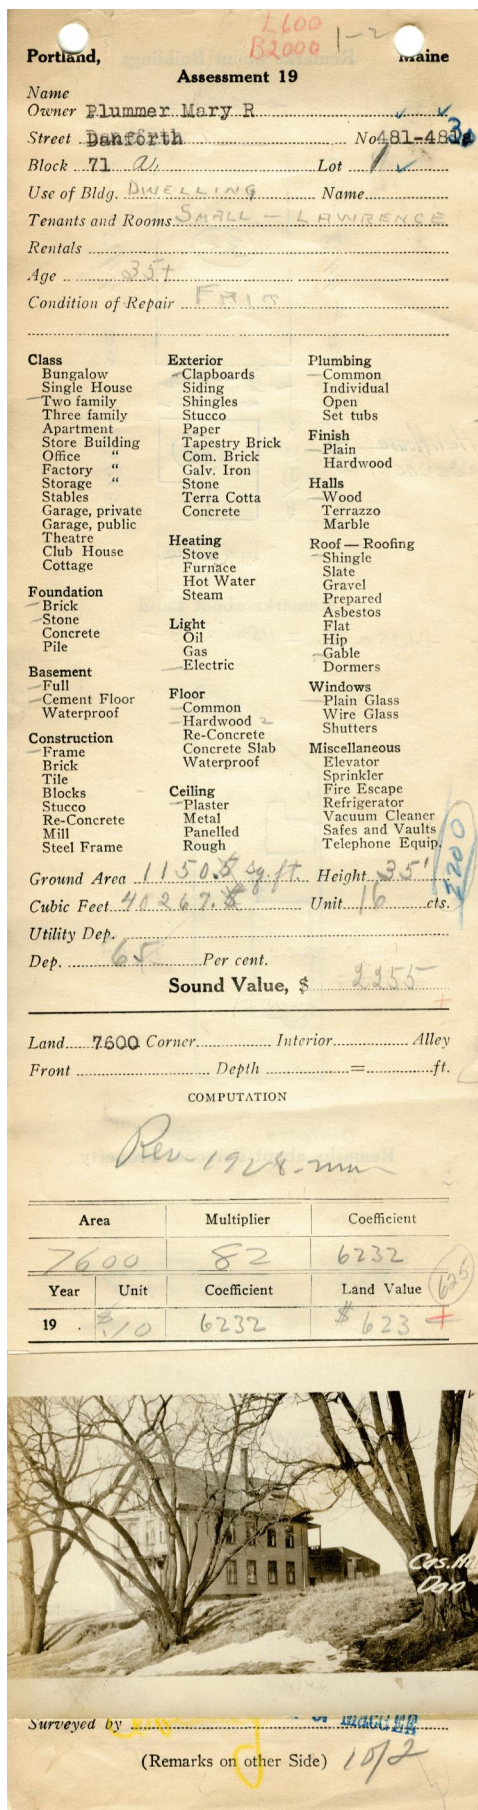 L600
B2000 1-2
Portland, Maine
Assessment 19
Name
Owner Plummer Mary R
Street Danforth No 481-481a
Block 71 a. Lot 1
Use of Bldg. DWELLING Name
Tenants and Rooms SMALL - LAWRENCE
Rentals
Age 35+
Condition of Repair FAIR
Class
Bungalow
Single House
Two family
Three family
Apartment
Store Building
Office "
Factory "
Storage "
Stables
Garage, private
Garage, public
Theatre
Club House
Cottage
Foundation
Brick
Stone
Concrete
Pile
Basement
Full
Cement Floor
Waterproof
Construction
Frame
Brick
Tile
Blocks
Stucco
Re-Concrete
Mill
Steel Frame
Exterior
Clapboards
Siding
Shingles
Stucco
Paper
Tapestry Brick
Com. Brick
Galv. Iron
Stone
Terra Cotta
Concrete
Heating
Stove
Furnace
Hot Water
Steam
Light
Oil
Gas
Electric
Floor
Common
Hardwood 2
Re-Concrete
Concrete Slab
Waterproof
Ceiling
Plaster
Metal
Panelled
Rough
Plumbing
Common
Individual
Open
Set tubs
Finish
Plain
Hardwood
Halls
Wood
Terrazzo
Marble
Roof — Roofing
Shingle
Slate
Gravel
Prepared
Asbestos
Flat
Hip
Gable
Dormers
Windows
Plain Glass
Wire Glass
Shutters
Miscellaneous
Elevator
Sprinkler
Fire Escape
Refrigerator
Vacuum Cleaner
Safes and Vaults
Telephone Equip.
2200
Ground Area 1150.5 sq.ft. Height 35'
Cubic Feet 40267.5 Unit 16 cts.
Utility Dep.
Dep. 65 Per cent.
Sound Value, $ 2255
Land 7600 Corner Interior Alley
Front Depth = ft.
COMPUTATION
Rev 1928
Area Multiplier Coefficient
7600 82 6232
Year Unit Coefficient Land Value 625
19 $.10 6232 $ 623
Cas. Hi
Dan
Surveyed by
(Remarks on other Side) 10/2